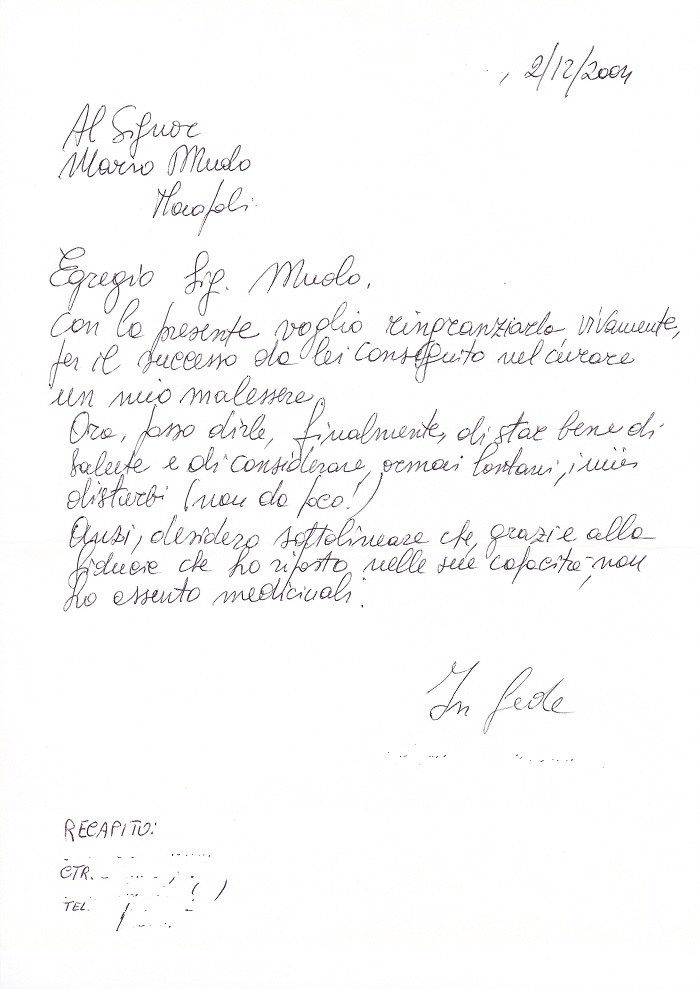 , 2/12/2004
Al Signor
Mario Mudo
Egregio Sig. Mudo,
con la presente voglio ringranziarla vivamente,
per il successo da lei conseguito nel curare
un mio malessere.
Ora, posso dirle, finalmente, di star bene di
salute e di considerare, ormai lontani, i miei
disturbi (non da poco!)
Anzi, desidero sottolineare che, grazie alla
fiducia che ho riposto nelle sue capacità, non
ho assunto medicinali.
In fede
RECAPITO:
CTR.
TEL.